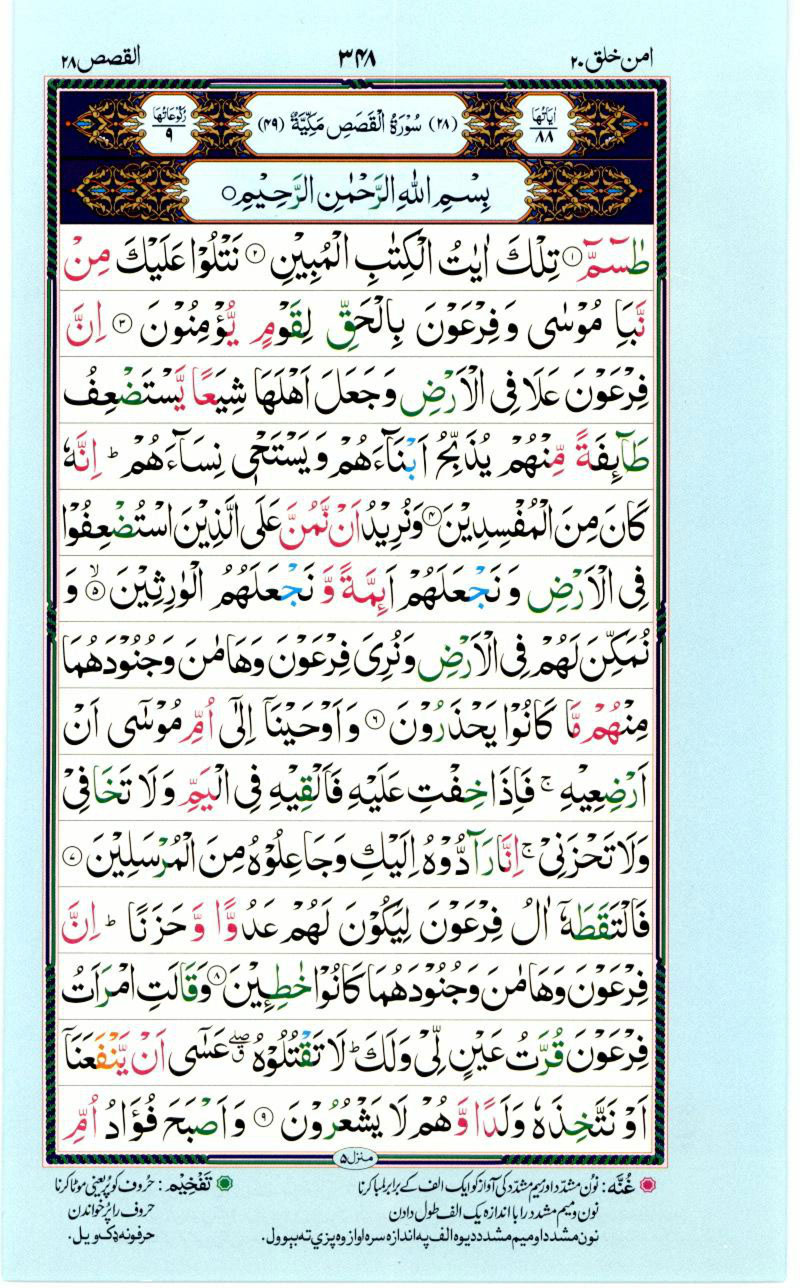 امن خلق ۲۰
۳۴۸
القصص ۲۸
اٰیَاتُهَا ۸۸
(۲۸) سُوْرَةُ الْقَصَصِ مَكِّيَّةٌ (۴۹)
رُكُوْعَاتُهَا ۹
بِسْمِ اللّٰهِ الرَّحْمٰنِ الرَّحِيْمِ ○
طٰسٓمّٓ ① تِلْكَ اٰيٰتُ الْكِتٰبِ الْمُبِيْنِ ② نَتْلُوْا عَلَيْكَ مِنْ
نَّبَاِ مُوْسٰى وَ فِرْعَوْنَ بِالْحَقِّ لِقَوْمٍ يُّؤْمِنُوْنَ ③ اِنَّ
فِرْعَوْنَ عَلَا فِى الْاَرْضِ وَ جَعَلَ اَهْلَهَا شِيَعًا يَّسْتَضْعِفُ
طَآئِفَةً مِّنْهُمْ يُذَبِّحُ اَبْنَآءَهُمْ وَ يَسْتَحْىٖ نِسَآءَهُمْ ؕ اِنَّهٗ
كَانَ مِنَ الْمُفْسِدِيْنَ ④ وَ نُرِيْدُ اَنْ نَّمُنَّ عَلَى الَّذِيْنَ اسْتُضْعِفُوْا
فِى الْاَرْضِ وَ نَجْعَلَهُمْ اَئِمَّةً وَّ نَجْعَلَهُمُ الْوٰرِثِيْنَ ⑤ۙ وَ
نُمَكِّنَ لَهُمْ فِى الْاَرْضِ وَ نُرِىَ فِرْعَوْنَ وَ هَامٰنَ وَ جُنُوْدَهُمَا
مِنْهُمْ مَّا كَانُوْا يَحْذَرُوْنَ ⑥ وَ اَوْحَيْنَاۤ اِلٰۤى اُمِّ مُوْسٰۤى اَنْ
اَرْضِعِيْهِ ۚ فَاِذَا خِفْتِ عَلَيْهِ فَاَلْقِيْهِ فِى الْيَمِّ وَ لَا تَخَافِىْ
وَ لَا تَحْزَنِىْ ۚ اِنَّا رَآدُّوْهُ اِلَيْكِ وَ جَاعِلُوْهُ مِنَ الْمُرْسَلِيْنَ ⑦
فَالْتَقَطَهٗۤ اٰلُ فِرْعَوْنَ لِيَكُوْنَ لَهُمْ عَدُوًّا وَّ حَزَنًا ؕ اِنَّ
فِرْعَوْنَ وَ هَامٰنَ وَ جُنُوْدَهُمَا كَانُوْا خٰطِـِٕيْنَ ⑧ وَ قَالَتِ امْرَاَتُ
فِرْعَوْنَ قُرَّتُ عَيْنٍ لِّىْ وَ لَكَ ؕ لَا تَقْتُلُوْهُ ۖۗ عَسٰۤى اَنْ يَّنْفَعَنَاۤ
اَوْ نَتَّخِذَهٗ وَلَدًا وَّ هُمْ لَا يَشْعُرُوْنَ ⑨ وَ اَصْبَحَ فُؤَادُ اُمِّ
منزل ۵
غُنَّه: نون مشدّد اور میم مشدّد کی آواز کو ایک الف کے برابر لمبا کرنا
نون و میم مشدد را با اندازه یک الف طول دادن
نون مشدد او میم مشدد دیوه الف په اندازه سره اواز وه پزې ته بېوول.
تَفْخِيْم: حُروف کو پُر یعنی موٹا کرنا
حروف را پُر خواندن
حرفونه ډک ویل.